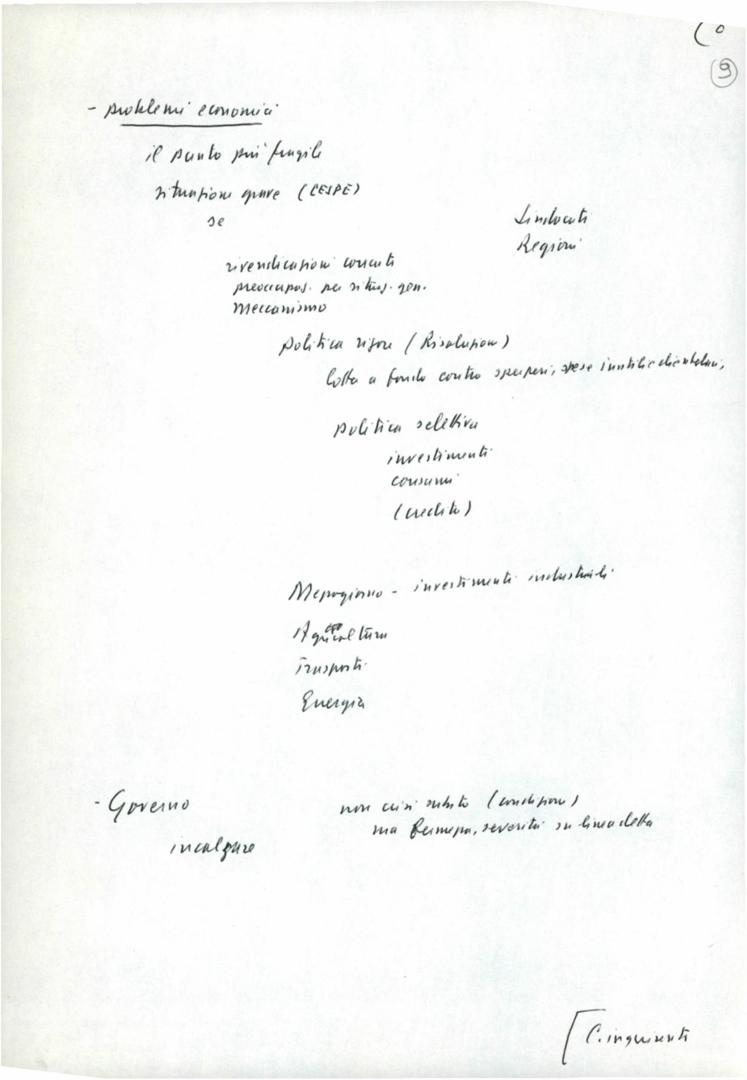 9
- problemi economici
il punto più fragile
situazione grave (CESPE)
se
Sindacati
Regioni
rivendicazioni
preoccupaz. per situaz. gen.
Meccanismo
politica rigore (Risoluzione)
lotta a fondo contro sperperi, spese inutili e clientelari,
politica selettiva
investimenti
consumi
(credito)
Mezzogiorno - investimenti industriali
Agricoltura
Trasporti
Energia
- Governo
non crisi subito (condizioni)
ma fermezza, severità su linea detta
incalzare
C. inquirenti